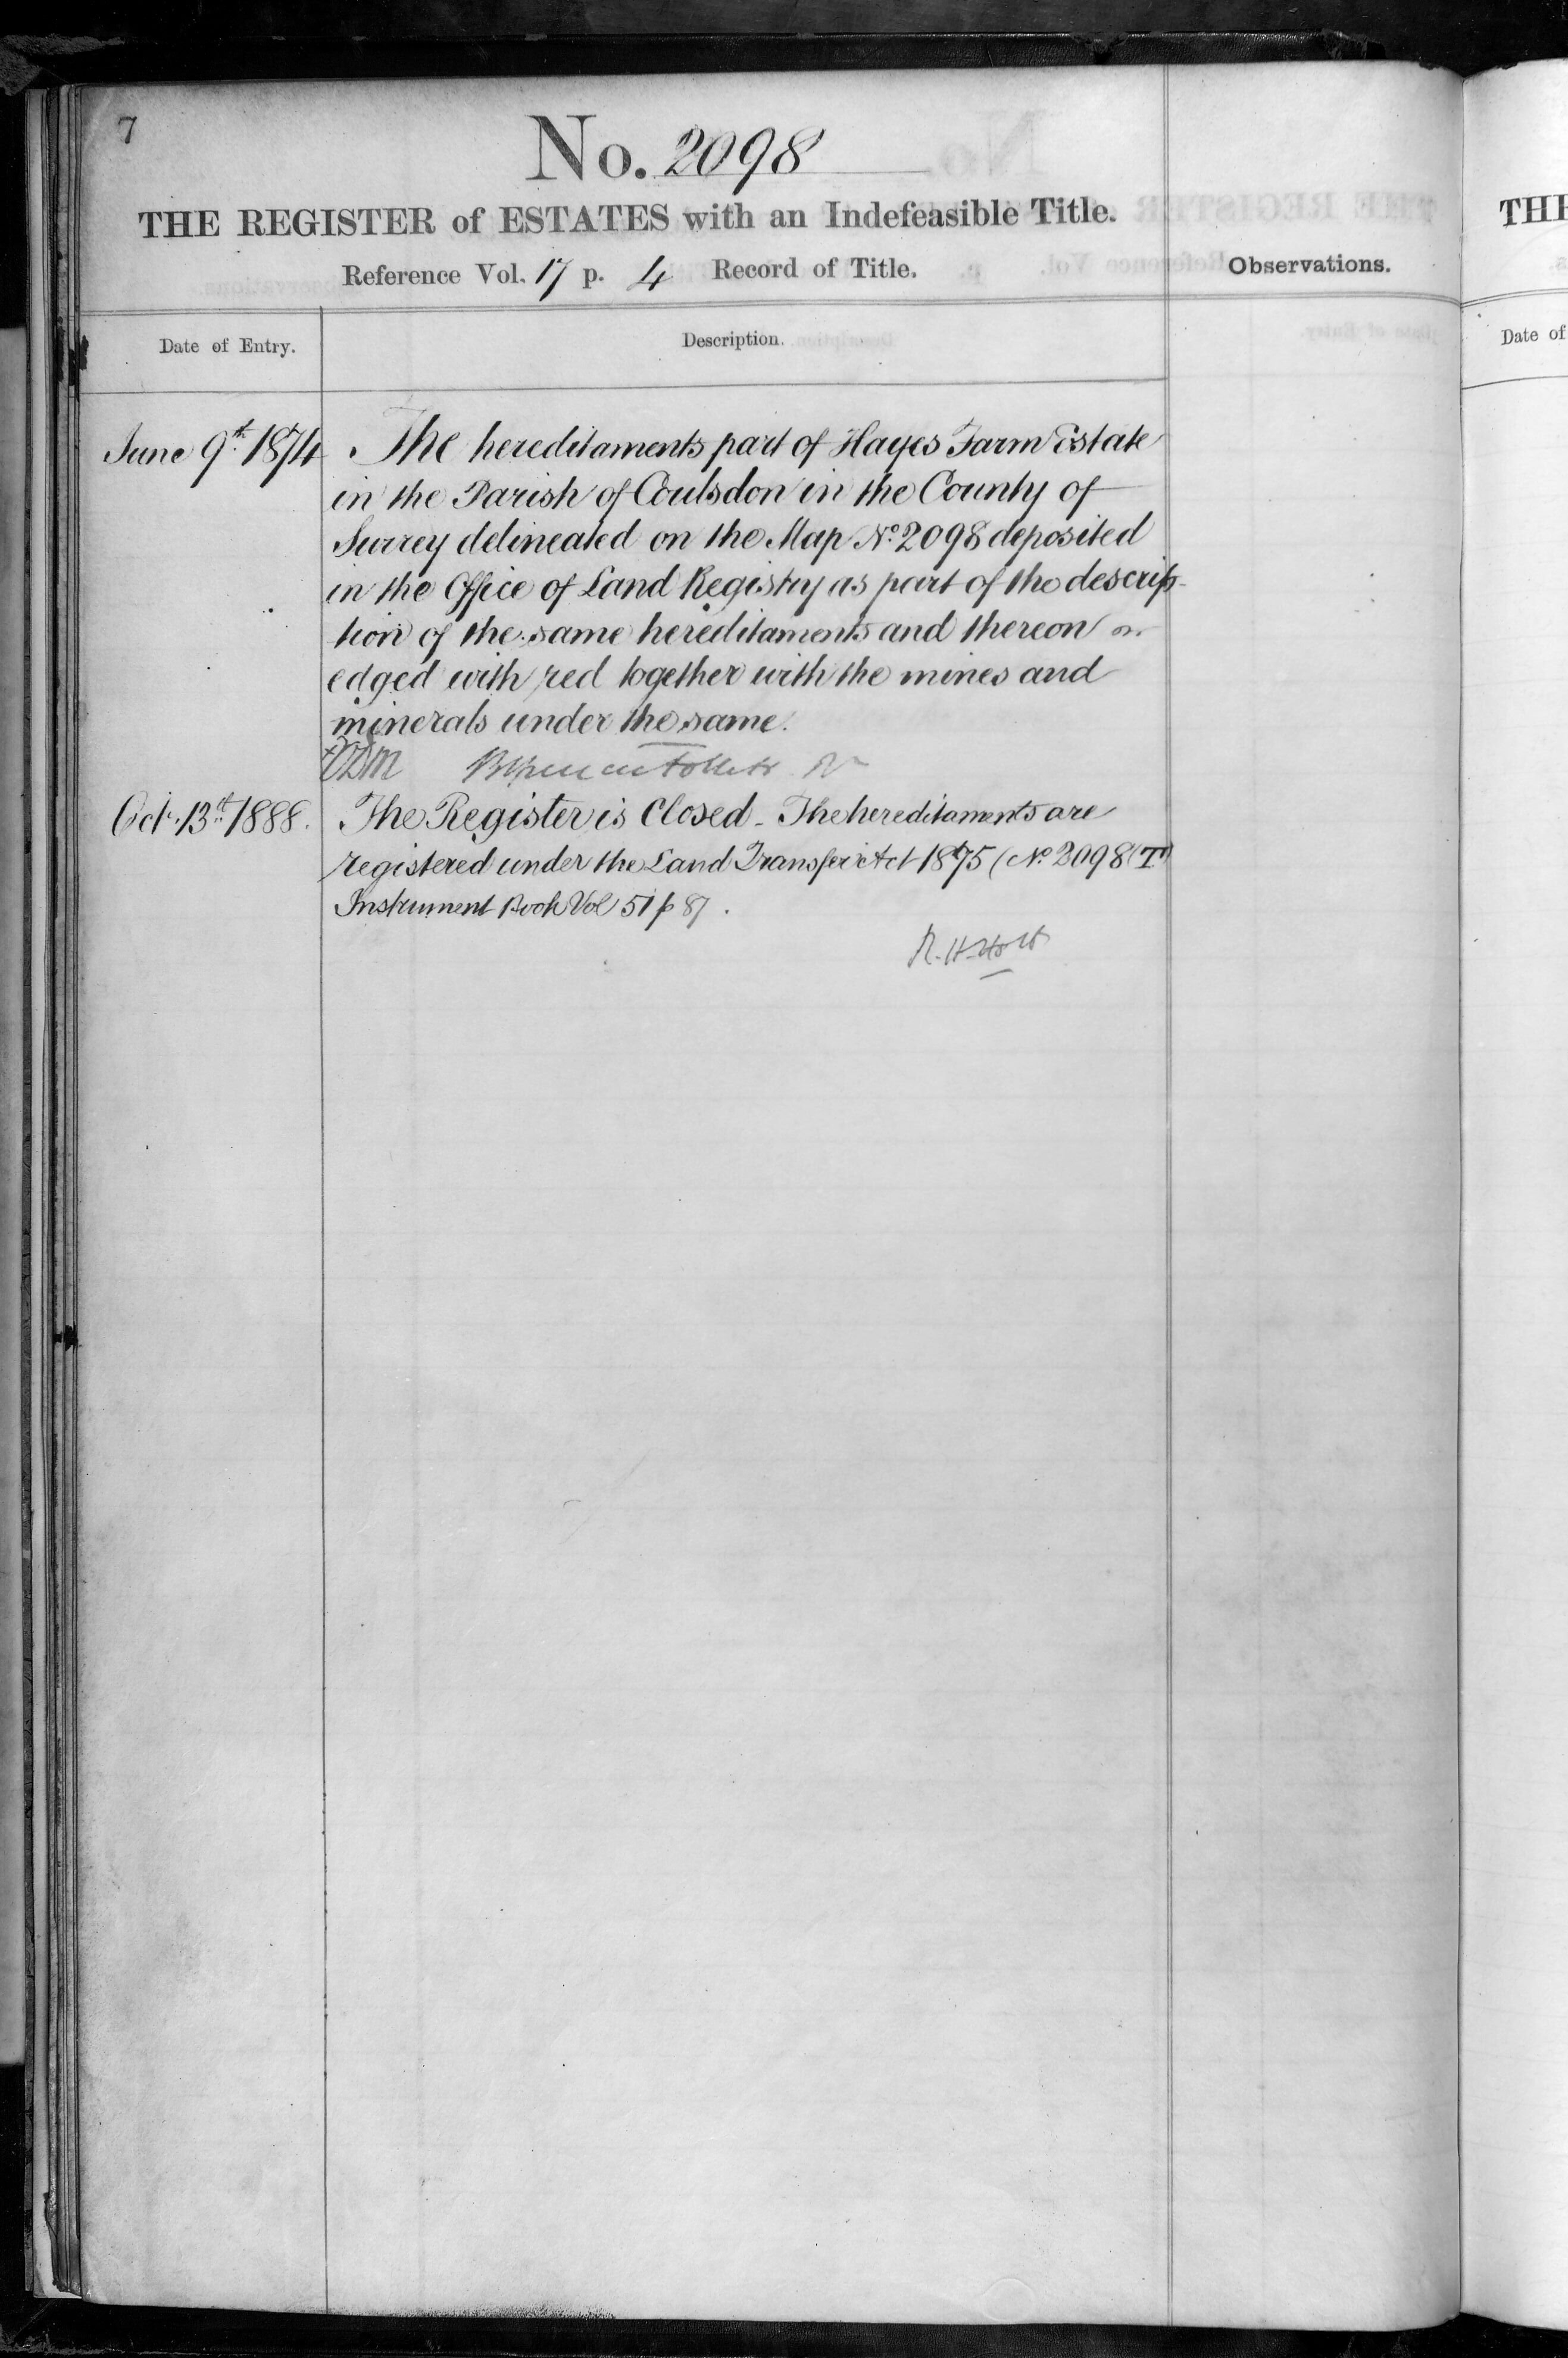 7
No. 2098
THE REGISTER of ESTATES with an Indefeasible Title.
Reference Vol. 17 p. 4 Record of Title.
Observations.
Date of Entry.
Description.
June 9th 1874
The hereditaments part of Hayes Farm Estate
in the Parish of Coulsdon in the County of
Surrey delineated on the Map No 2098 deposited
in the Office of Land Registry as part of the descrip-
tion of the same hereditaments and thereon
edged with red together with the mines and
minerals under the same.
Follett
Oct. 13th 1888.
The Register is Closed - The hereditaments are
registered under the Land Transfer Act 1875 (No 2098 (T)
Instrument Book Vol 51 p 87.
R. H. Holt
THE
Date of